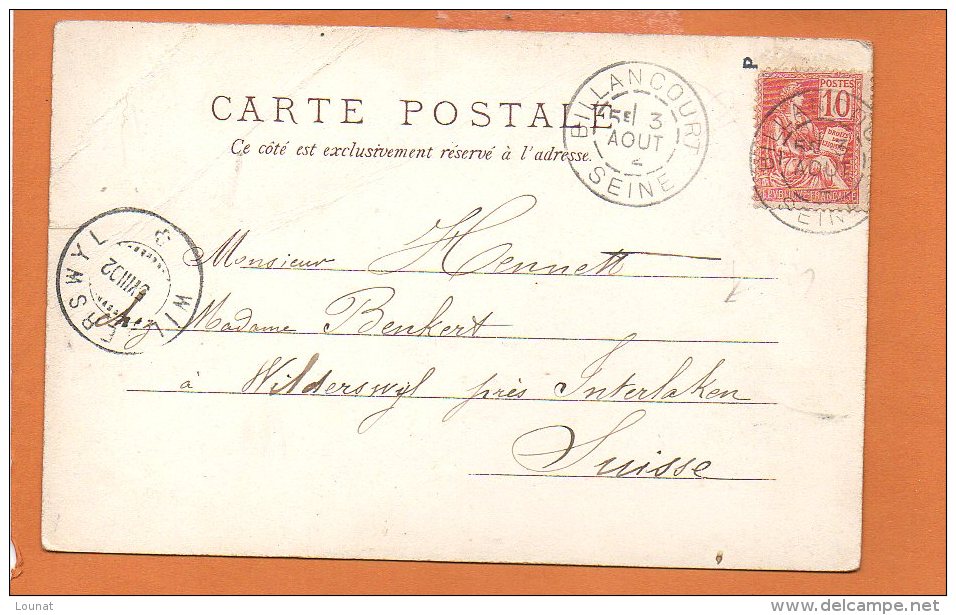 CARTE POSTALE
Ce côté est exclusivement réservé à l'adresse.
P
BILLANCOURT
5E 3
AOUT
2
SEINE
POSTES
10
AOUT
WILDERSWYL
VIII 02
Monsieur Hennett
Madame Benkert
à Wilderswyl près Interlaken
Suisse
Lounat
www.delcampe.net